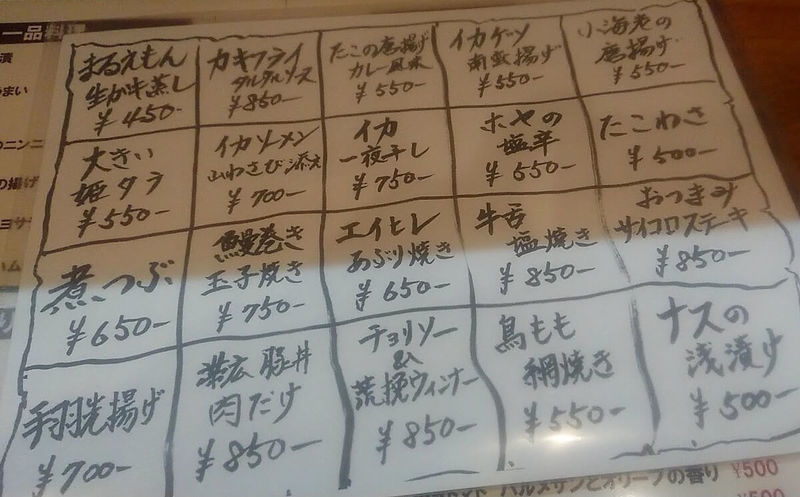 一品料理
まるえもん
生かき蒸し
¥450-
カキフライ
タルタルソース
¥850-
たこの唐揚げ
カレー風味
¥550-
イカゲソ
南蛮揚げ
¥550-
小海老の
唐揚げ
¥550-
大きい
姫タラ
¥550-
イカソーメン
山わさび添え
¥700-
イカ
一夜干し
¥750-
ホヤの
塩辛
¥550-
たこわさ
¥500-
煮つぶ
¥650-
鰻巻き
玉子焼き
¥750-
エイヒレ
あぶり焼き
¥650-
牛舌
塩焼き
¥850-
おつまみ
サイコロステーキ
¥850-
手羽先揚げ
¥700-
帯広豚丼
肉だけ
¥850-
チョリソー
&
荒挽ウィンナー
¥850-
鳥もも
網焼き
¥550-
ナスの
浅漬け
¥500-
パルメザンとオリーブの香り ¥500